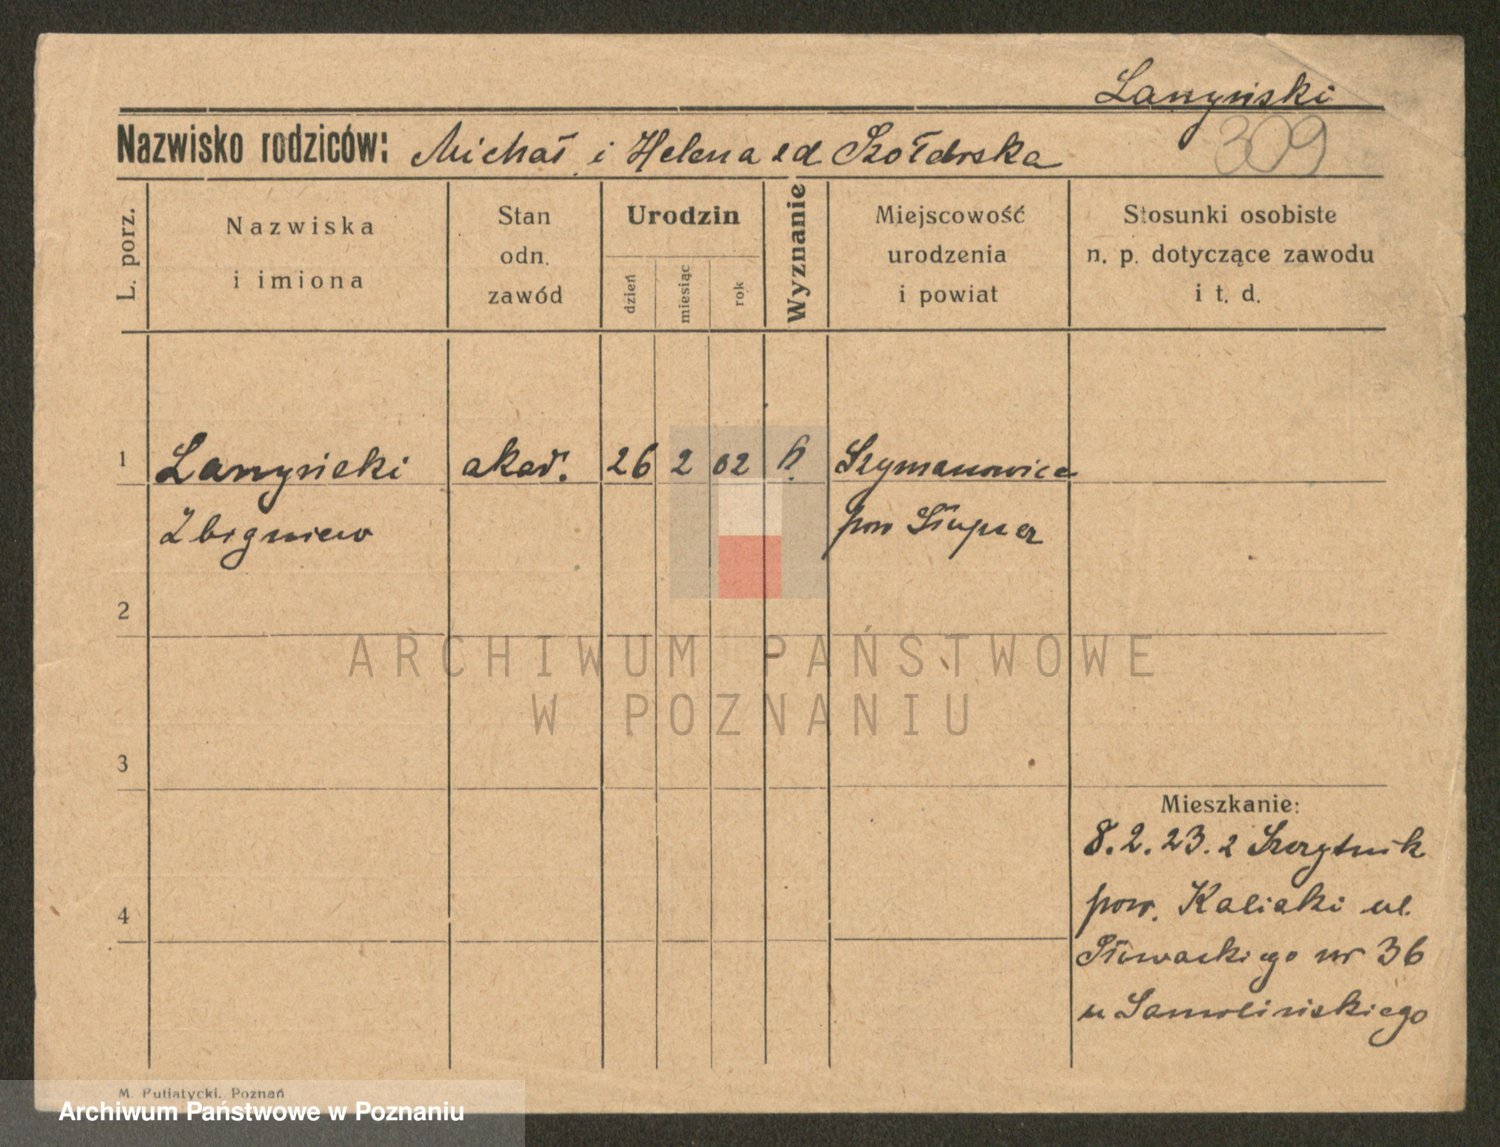 Lanyński
309
Nazwisko rodziców: Michał i Helena zd Szołdrska
L. porz.
Nazwiska i imiona
Stan odn. zawód
Urodzin
dzień
miesiąc
rok
Wyznanie
Miejscowość urodzenia i powiat
Stosunki osobiste n. p. dotyczące zawodu i t. d.
1 akad. 26 2 02 k. Szymanowice
Zbigniew pow Słupca
2
3
4
Mieszkanie:
8.2.23. z Szczytnik
pow. Kaliski ul.
Słowackiego nr 36
u Samolińskiego
ARCHIWUM PAŃSTWOWE
W POZNANIU
M. Putiatycki, Poznań
Archiwum Państwowe w Poznaniu